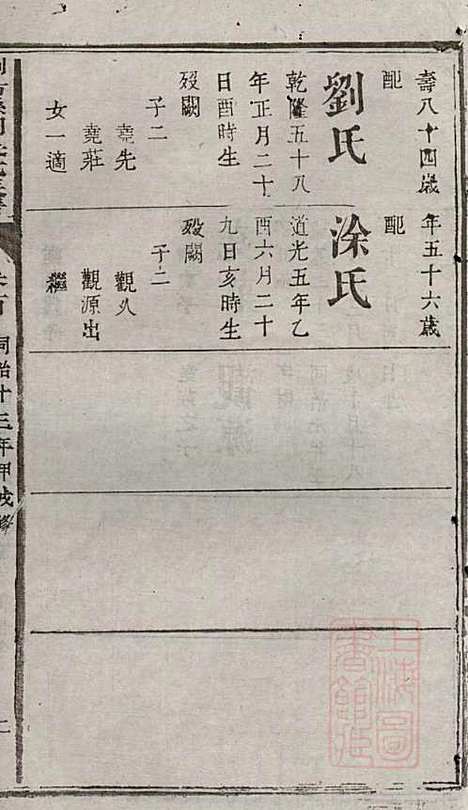 壽八十四歲
配
劉氏
乾隆五十八
年正月二十
日酉時生
歿闕
子二
堯先
堯莊
女一適
年五十六歲
配
涂氏
道光五年乙
酉六月二十
九日亥時生
歿闕
子二
觀
觀源出
繼
同治十三年甲戌修
上海圖書館藏